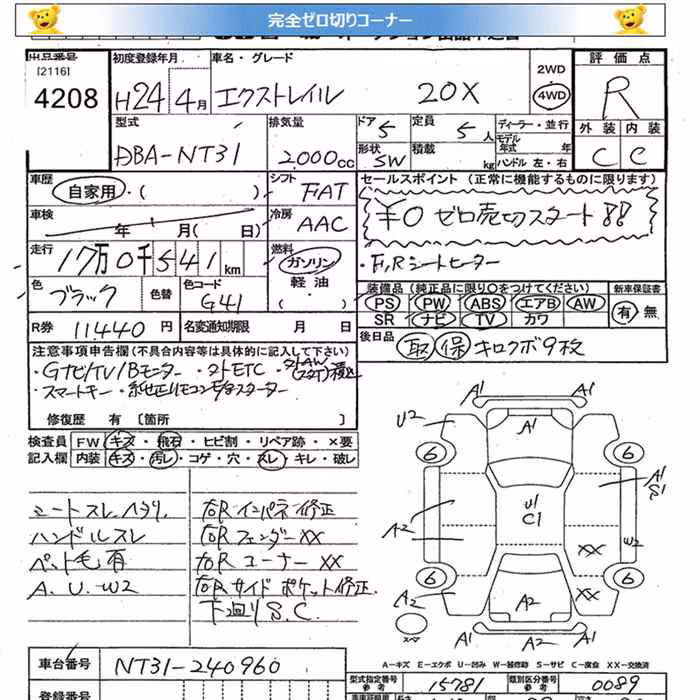 完全ゼロ切りコーナー
出品番号 初度登録年月 車名・グレード 2WD 評価点
[2116]
4208 H24年4月 エクストレイル 20X 4WD R
型式 排気量 ドア 5 定員 5人 ディーラー・並行 外装 内装
モデル年式 年
DBA-NT31 2000cc 形状 5W 積載 kg ハンドル 左・右 C C
車歴 自家用・( ) シフト FAT セールスポイント (正常に機能するものに限ります)
車検 年 月( 日) 冷房 AAC ¥0 ゼロ売切スタート!!
走行 17万0千541km 燃料 ガソリン ・F,Rシートヒーター
軽油
・( )
色 ブラック 色替 色コード G41 装備品 (純正品に限り○をつけてください) 新車保証書
PS PW ABS エアB AW 有 無
SR ナビ TV カワ
R券 11440円 名変通知期限 月 日 後日品 取 保 キロクボ9枚
注意事項申告欄(不具合内容等は具体的に記入して下さい)
・GナビTV/Bモニター ・外ETC ・外AW
・スマートキー
修復歴 有 [箇所 ]
検査員 FW キズ・飛石・ヒビ割・リペア跡・×要
記入欄 内装 キズ・汚レ・コゲ・穴・スレ・キレ・破レ
シートスレ、ヘタリ 右Rインパネ修正
ハンドルスレ 右RフェンダーXX
ペット毛有 右RコーナーXX
A.U.W2 右Rサイドポケット修正
下回りS.C.
A1 A1
U2 A1
6 6
A1
S1
U1
C1
A2
XX W2
6 6
A2 XX
A2
スペア
A1 A1
A-キズ E-エクボ U-凹み W-補修跡 S-サビ C-腐食 XX-交換済
車台番号 NT31-240960 型式指定番号 参考 15781 類別区分番号 参考 0089